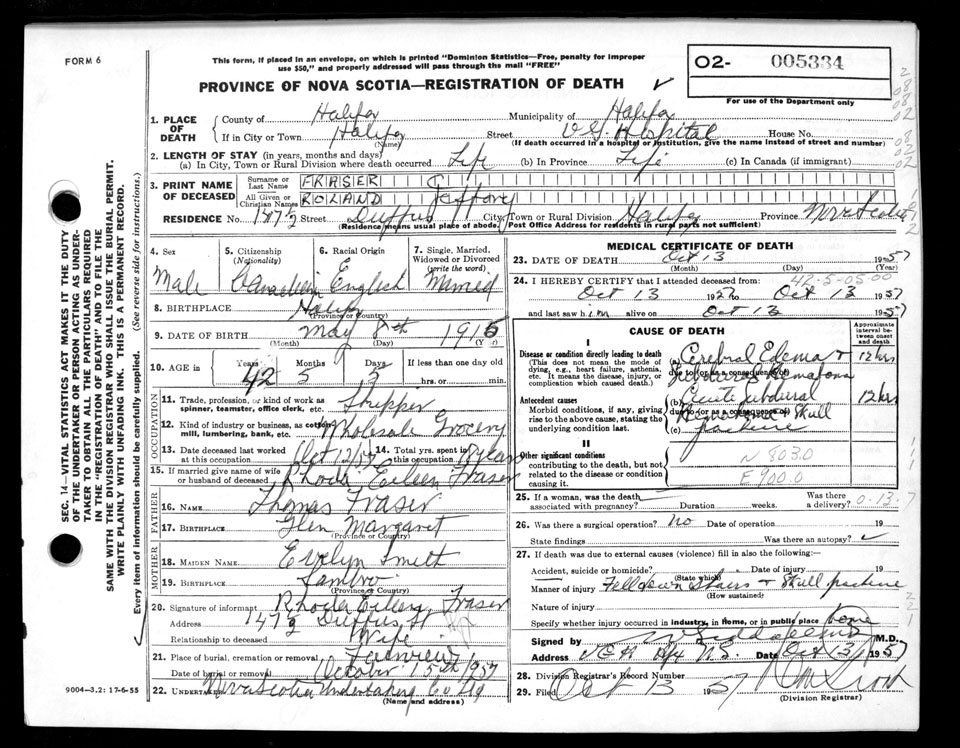 FORM 6
This form, if placed in an envelope, on which is printed "Dominion Statistics—Free, penalty for improper
use $50," and properly addressed will pass through the mail "FREE"
PROVINCE OF NOVA SCOTIA—REGISTRATION OF DEATH
02- 005334
For use of the Department only
SEC. 14—VITAL STATISTICS ACT MAKES IT THE DUTY
OF THE UNDERTAKER OR PERSON ACTING AS UNDER-
TAKER TO OBTAIN ALL THE PARTICULARS REQUIRED
IN THE "REGISTRATION OF DEATH" AND TO FILE THE
SAME WITH THE DIVISION REGISTRAR WHO SHALL ISSUE THE BURIAL PERMIT.
WRITE PLAINLY WITH UNFADING INK. THIS IS A PERMANENT RECORD.
Every item of information should be carefully supplied. (See reverse side for instructions.)
1. PLACE OF DEATH
County of Halifax Municipality of Halifax
If in City or Town Halifax Street V.G. Hospital House No.
(Name) (If death occurred in a hospital or institution, give the name instead of street and number)
2. LENGTH OF STAY (in years, months and days)
(a) In City, Town or Rural Division where death occurred Life (b) In Province Life (c) In Canada (if immigrant)
3. PRINT NAME OF DECEASED
Surname or Last Name FRASER
All Given or Christian Names ROLAND Jeffory
RESIDENCE No. 147½ Street Duffus City, Town or Rural Division Halifax Province Nova Scotia
(Residence means usual place of abode. Post Office Address for residents in rural parts not sufficient)
4. Sex Male
5. Citizenship (Nationality) Canadian
6. Racial Origin English
7. Single, Married, Widowed or Divorced (write the word) Married
8. BIRTHPLACE Halifax
(Province or Country)
9. DATE OF BIRTH May 8th 1915
(Month) (Day) (Year)
10. AGE in Years 42 Months 5 Days 5 If less than one day old
hrs. or min.
OCCUPATION
11. Trade, profession, or kind of work as spinner, teamster, office clerk, etc. Shipper
12. Kind of industry or business, as cotton mill, lumbering, bank, etc. Wholesale Grocery
13. Date deceased last worked at this occupation Oct 12/57 14. Total yrs. spent in this occupation 18 years
15. If married give name of wife or husband of deceased Rhoda Eileen Fraser
FATHER
16. NAME Thomas Fraser
17. BIRTHPLACE Glen Margaret
(Province or Country)
MOTHER
18. MAIDEN NAME Evelyn Smith
19. BIRTHPLACE Sambro
(Province or Country)
20. Signature of informant Rhoda Eileen Fraser
Address 147½ Duffus St Hfx
Relationship to deceased Wife
21. Place of burial, cremation or removal Fairview
Date of burial or removal October 15th 1957
22. UNDERTAKER Nova Scotia Undertaking Co Ltd
(Name and address)
9004-3.2: 17-6-55
MEDICAL CERTIFICATE OF DEATH
23. DATE OF DEATH Oct 13 1957
(Month) (Day) (Year)
42-5-05-00
24. I HEREBY CERTIFY that I attended deceased from
Oct 13 1957 to Oct 13 1957
and last saw him alive on Oct 13 1957
CAUSE OF DEATH
Approximate interval between onset and death
I
Disease or condition directly leading to death
(This does not mean the mode of dying, e.g., heart failure, asthenia, etc. It means the disease, injury, or complication which caused death.)
(a) Cerebral Edema + 12 hrs
due to (or as a consequence of)
Subdural Hematoma
Antecedent causes
Morbid conditions, if any, giving rise to the above cause, stating the underlying condition last.
(b) Acute subdural 12 hrs
due to (or as a consequence of)
Hematoma + Skull
(c) fracture
II
Other significant conditions
contributing to the death, but not related to the disease or condition causing it.
N 803.0
E 900.0
25. If a woman, was the death associated with pregnancy? Duration weeks. Was there a delivery? 0.13.7
26. Was there a surgical operation? no Date of operation 19
State findings Was there an autopsy? ✓
27. If death was due to external causes (violence) fill in also the following:
Accident, suicide or homicide? Date of injury 19
(State which)
Manner of injury Fell down stairs + Skull fracture
(How sustained)
Nature of injury
Specify whether injury occurred in industry, in home, or in public place home
Signed by M.D.
Address V.G.H Hfx N.S. Date Oct 13/ 1957
28. Division Registrar's Record Number
29. Filed Oct 13 1957
(Division Registrar)